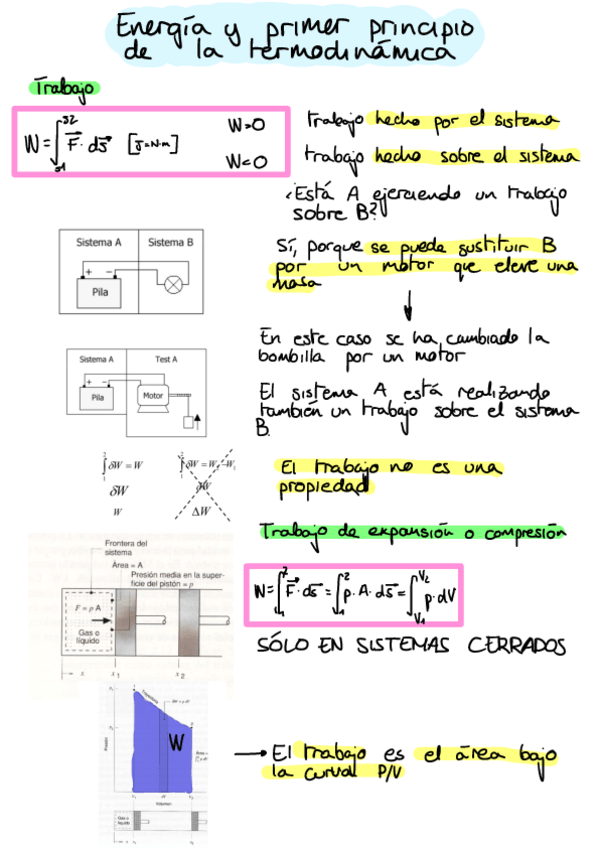 Energía y primer principio
de la termodinámica
Trabajo
W = ∫ F · ds [J=N·m]
s2
s1
W>0
W<0
trabajo hecho por el sistema
trabajo hecho sobre el sistema
¿Está A ejerciendo un trabajo
sobre B?
Sistema A
Sistema B
+ −
Pila
Sí, porque se puede sustituir B
por un motor que eleve una
masa
En este caso se ha cambiado la
bombilla por un motor
Sistema A
Test A
+ −
Pila
Motor
El sistema A está realizando
también un trabajo sobre el sistema
B.
∫₁² δW = W
δW
W
∫₁² δW = W₂ − W₁
δW
ΔW
El trabajo no es una
propiedad
Trabajo de expansión o compresión
Frontera del
sistema
Área = A
Presión media en la super-
ficie del pistón = p
F = p A
Gas o
líquido
x
x1
x2
W = ∫₁² F · ds = ∫₁² p · A · ds = ∫ p · dV
V2
V1
SÓLO EN SISTEMAS CERRADOS
Trayectoria
Presión
W
Volumen
Gas o
líquido
→ El trabajo es el área bajo
la curva P/V